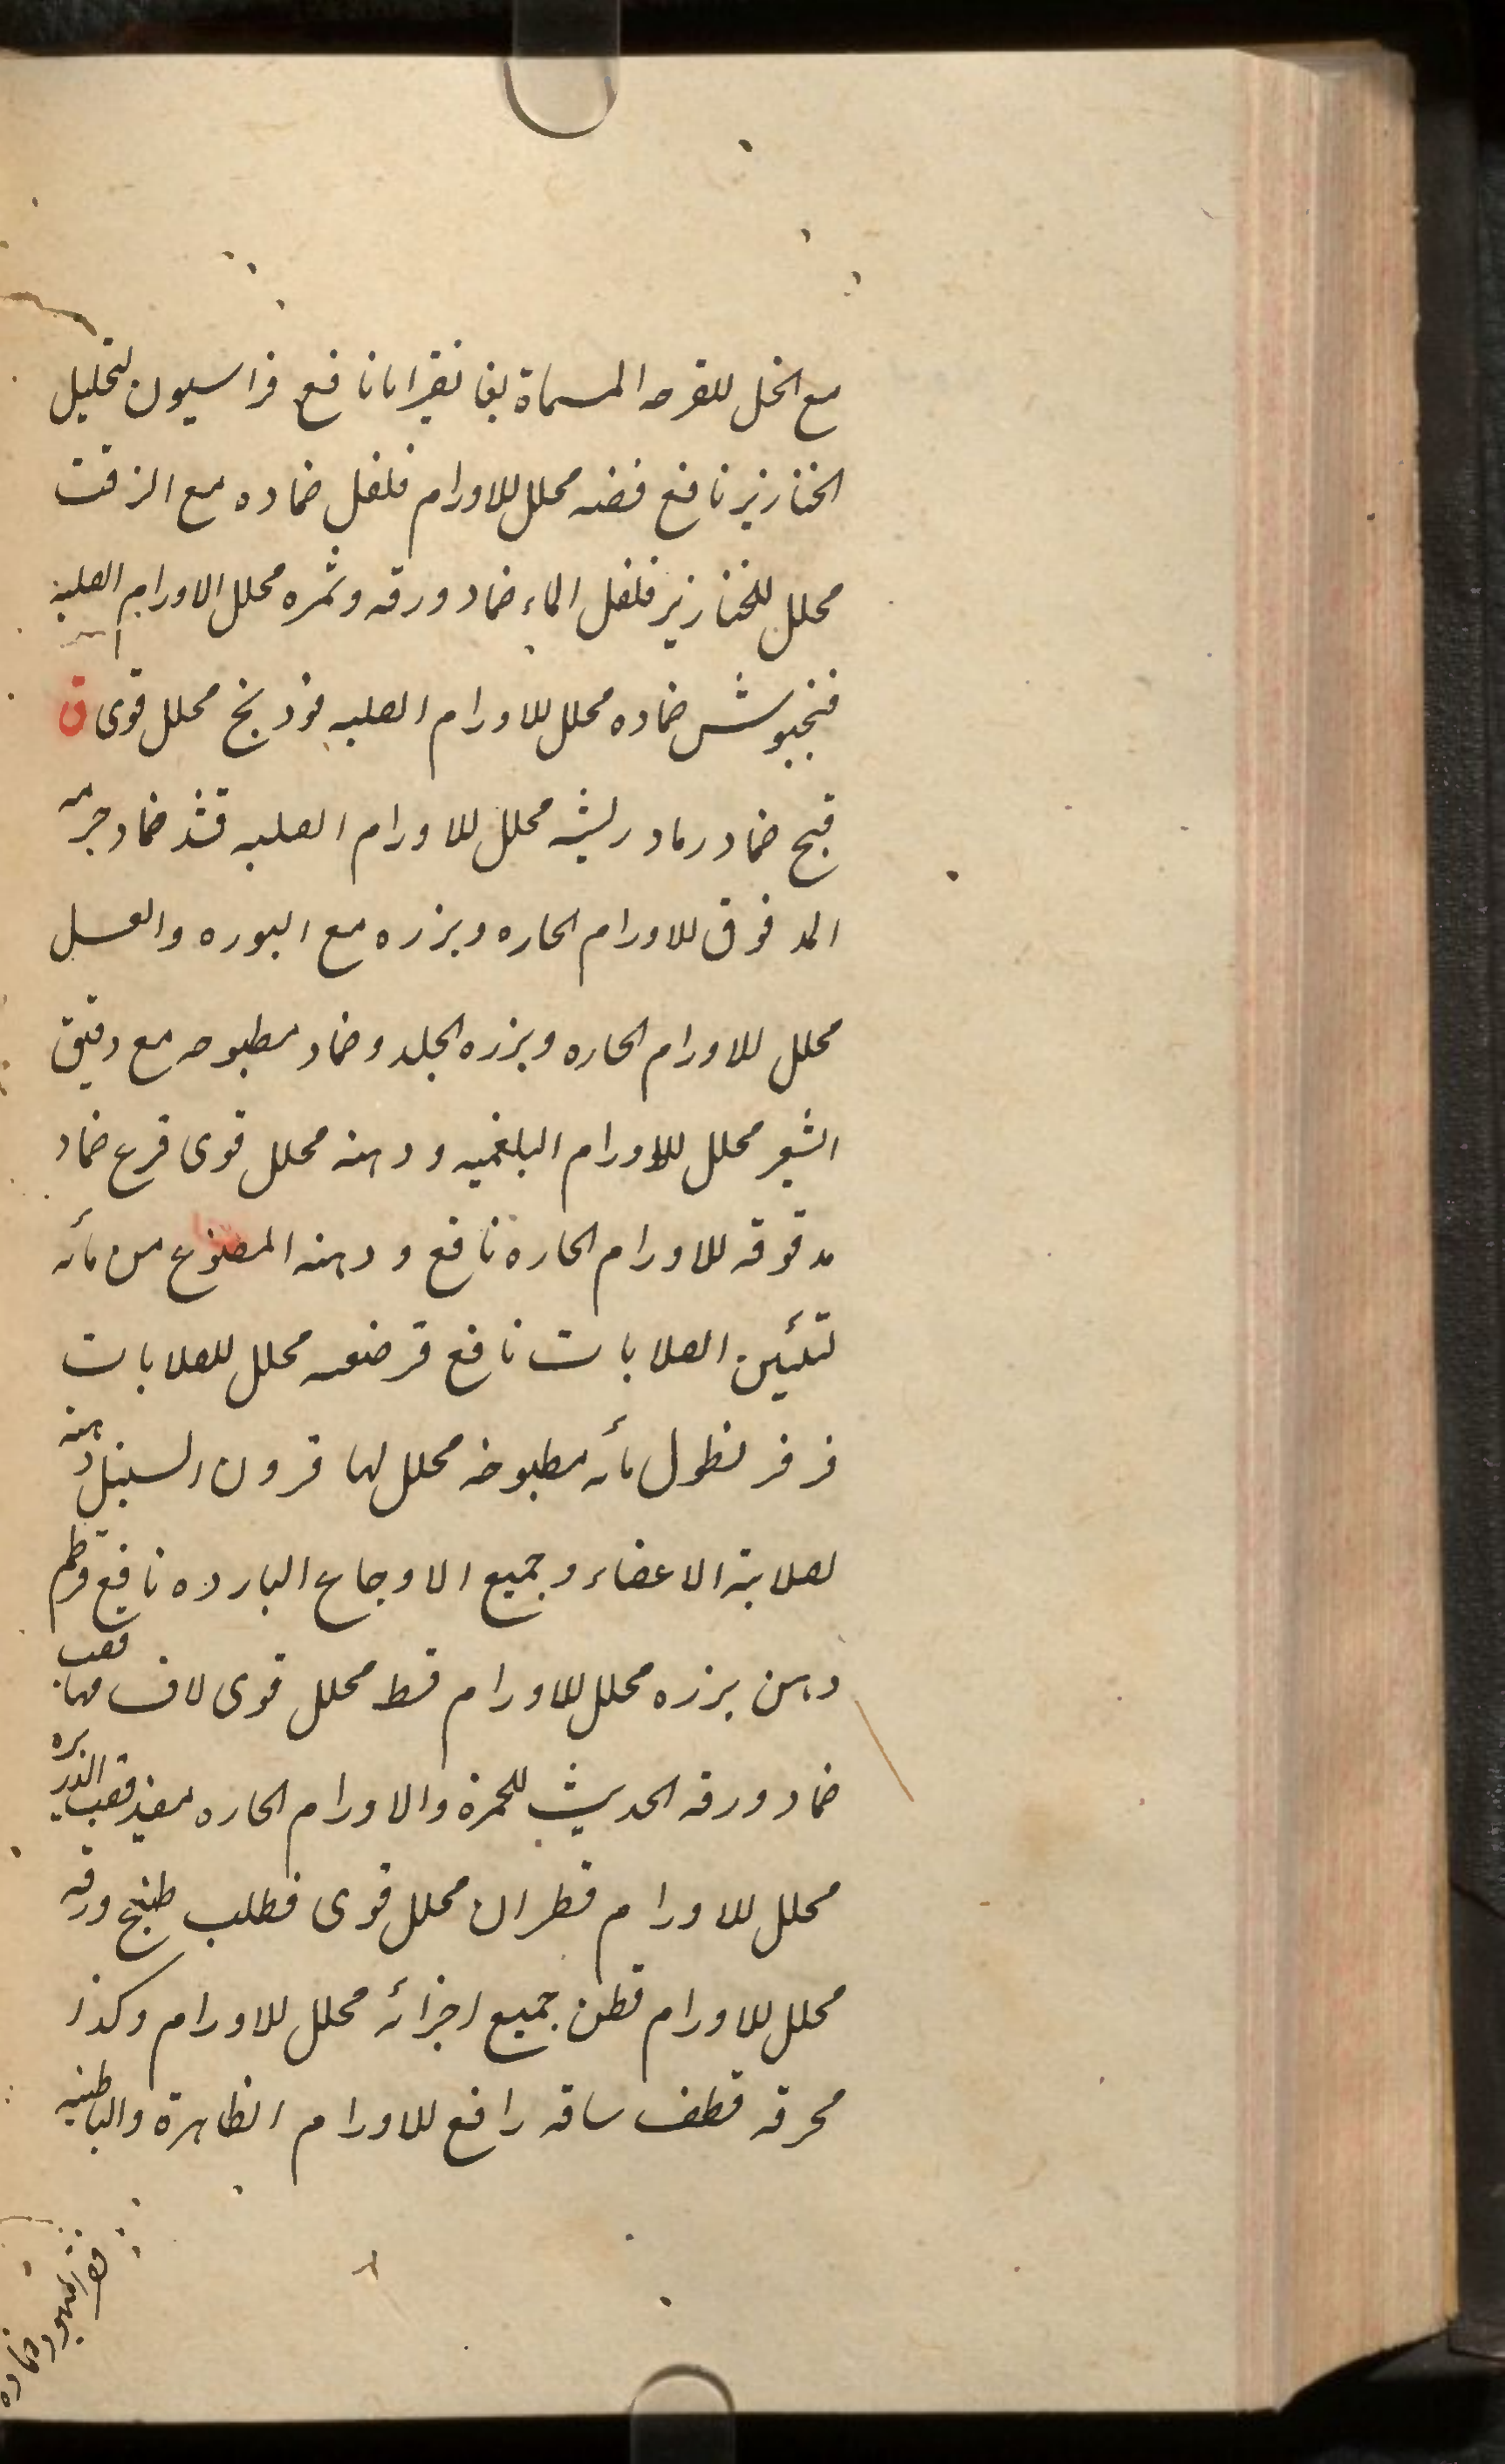 مع الخل للقرحه المسماة بغانقرايانا نافع فراسيون لتحليل
الخنازير نافع فضه محلل للاورام فلفل ضماده مع الزفت
محلل للخنازير فلفل الماء ضماد ورقه وثمره محلل الاورام الصلبه
فنجيوش ضماده محلل للاورام الصلبه فوذنج محلل قوى ق
قبج ضماد رماد ريشه محلل للاورام الصلبه قثد ضماد جرمه
المدقوق للاورام الحاره وبزره مع البوره والعسل
محلل للاورام الحاره وبزره الجلد وضماد مطبوخه مع دقيق
الشعير محلل للاورام البلغميه ودهنه محلل قوى قرع ضماد
مدقوقه للاورام الحاره نافع ودهنه المصنوع من مائه
لتليين الصلابات نافع قرصعنه محلل للصلابات
قرقر نطول مائه مطبوخه محلل لها قرون السنبل دهنه
لصلابة الاعضاء وجميع الاوجاع البارده نافع قرطم
دهن بزره محلل للاورام قسط محلل قوى لاف مها قصب
ضماد ورقه الحديث للحمرة والاورام الحاره مفيد قصب الذريره
محلل للاورام قطران محلل قوى قطلب طبخ ورقه
محلل للاورام قطن جميع اجزائه محلل للاورام وكذا
محرقه قطف ساقه رافع للاورام الظاهرة والباطنيه
ضماده